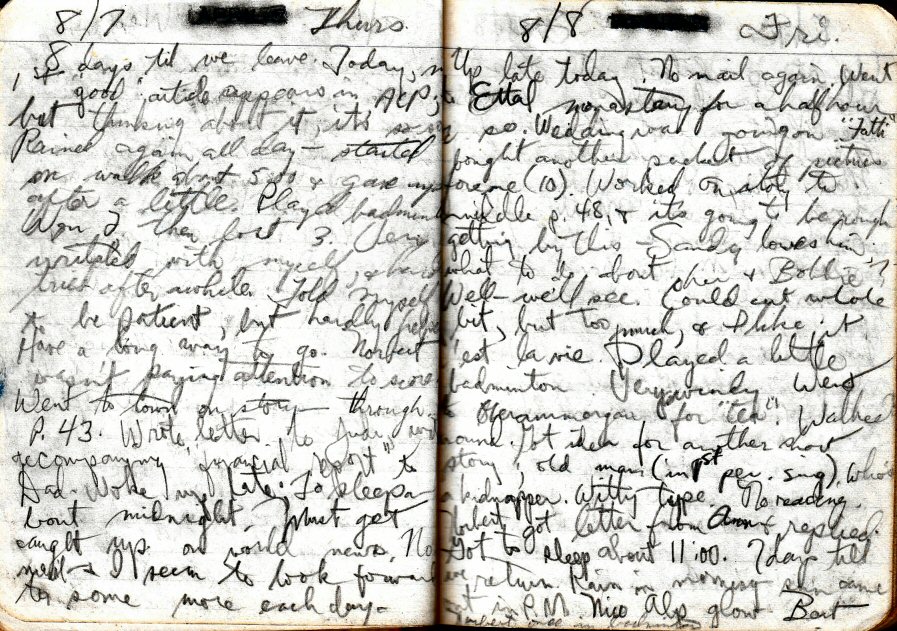 8/7 Thurs.
8 days til we leave. Today,
"good" article appears in ACP,
but thinking about it, it's
Rained again all day - started
on walk about 5:30 & gave up
after a little. Played badminton
Won 2 then lost 3. Very
irritated with myself, &
tried after awhile. Told myself
to be patient, but hardly helped
Have a long way to go. Norbert
wasn't paying attention to score.
Went to town on story through
p. 43. Wrote letter to Judi,
accompanying "financial report" to
Dad. Woke up late. To sleep a-
bout midnight. Must get
caught up on world news. No
mail & I seem to look forward
to some more each day-
8/8 Fri.
Up late today. No mail again. Went
to Ettal monastery for a half hour
or so. Wedding was going on. "Fath"
bought another packet of pictures
for one (10). Worked on story to
middle p. 48, & it's going to be rough
getting by this - Sandy loves him.
what to do bout her & Bobbie?
Well - we'll see. Could cut whole
bit, but too much, & I like it
C'est la vie. Played a little
badminton. Very windy. Went
to Oberammergau for "tea". Walked
around. Got idea for another short
story, old man (in 1st per. sing), who's
a kidnapper. Witty type. No reading.
Norbert got letter from Ann & replied.
Got to sleep about 11:00. 7 days till
we return. Rain in morning sun came
out in P.M. Nice Alp glow. Beat
Norbert once in badminton